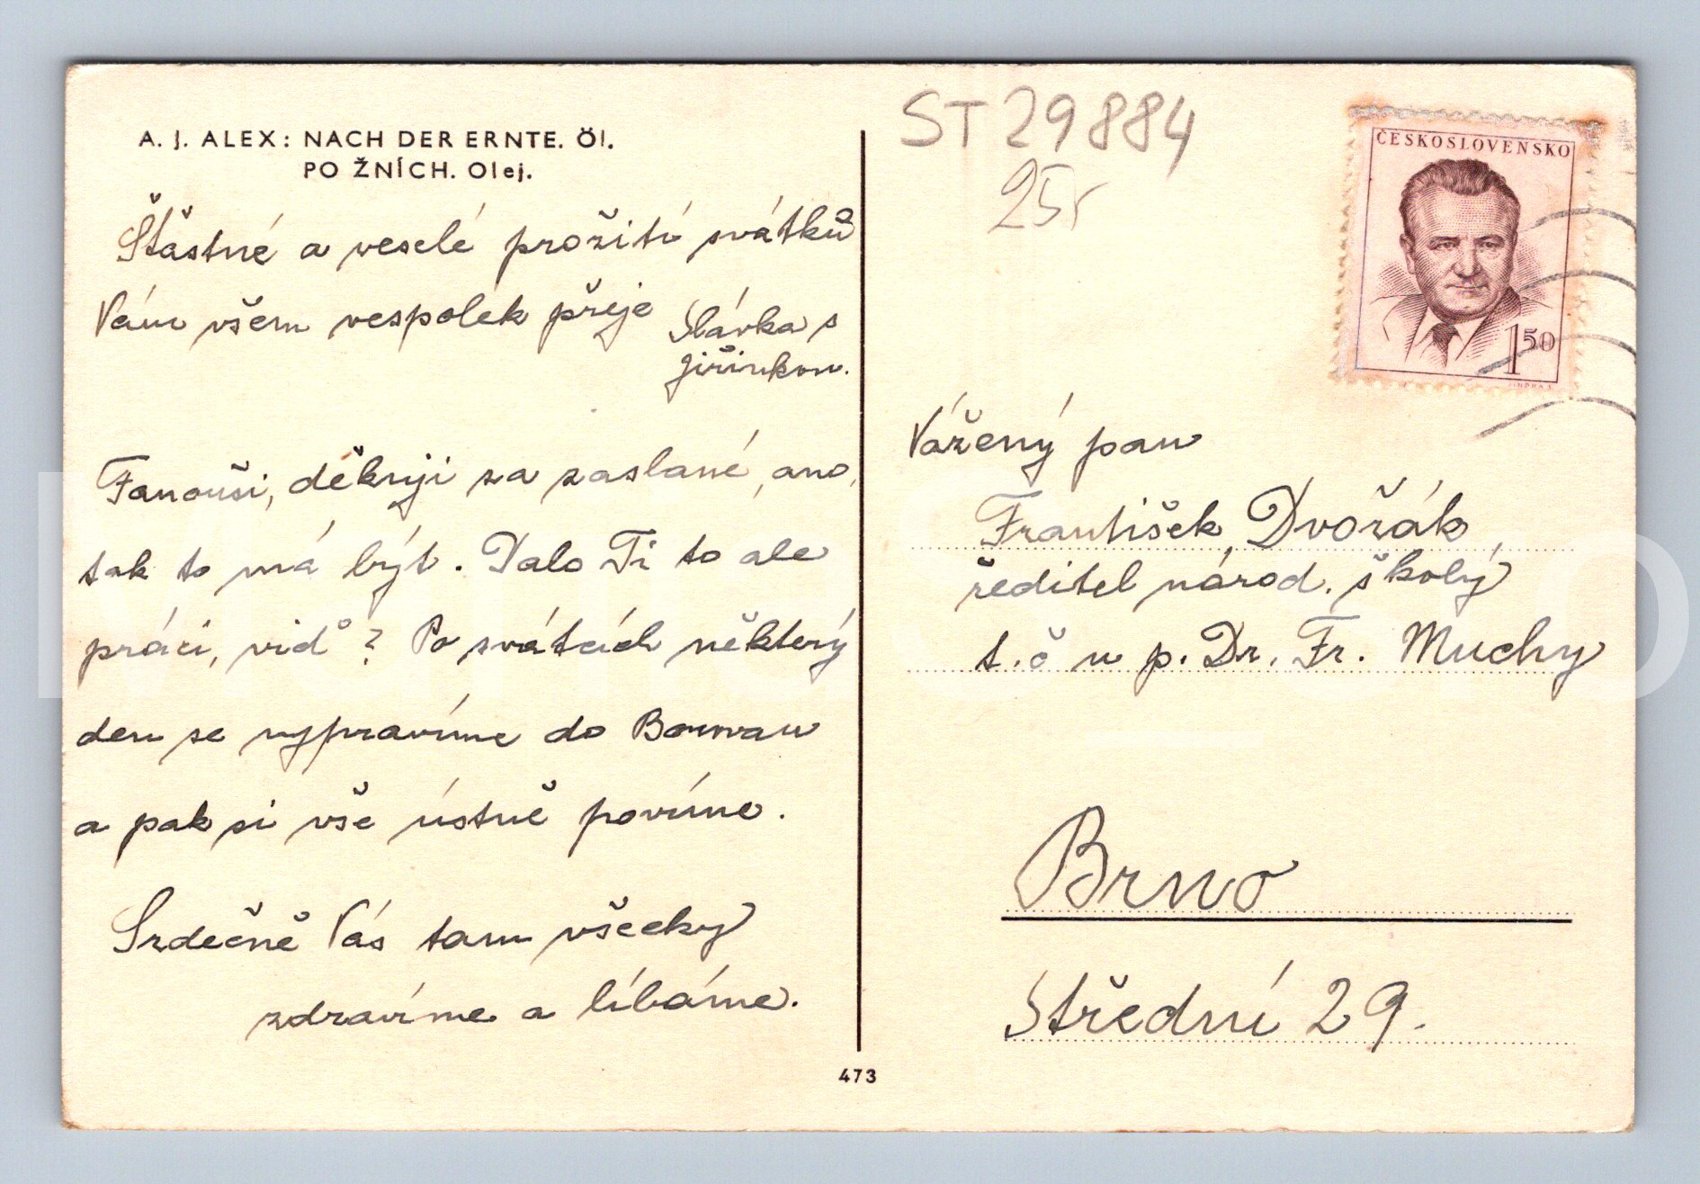 A. J. ALEX: NACH DER ERNTE. Öl.
PO ŽNÍCH. Olej.
Šťastné a veselé prožití svátků
Vám všem vespolek přeje Slávka s
Jiřinkou.
Fanouši, děkuji za zaslané, ano,
tak to má být. Dalo Ti to ale
práci, viď? Po svátcích některý
den se vypravíme do
a pak si vše ústně povíme.
Srdečně Vás tam všecky
zdravíme a líbáme.
473
ST 29884
25,-
ČESKOSLOVENSKO
1 50
Vážený pan
František Dvořák,
ředitel národ. školy
t. č u p. Dr. Fr. Muchy
Brno
Střední 29.